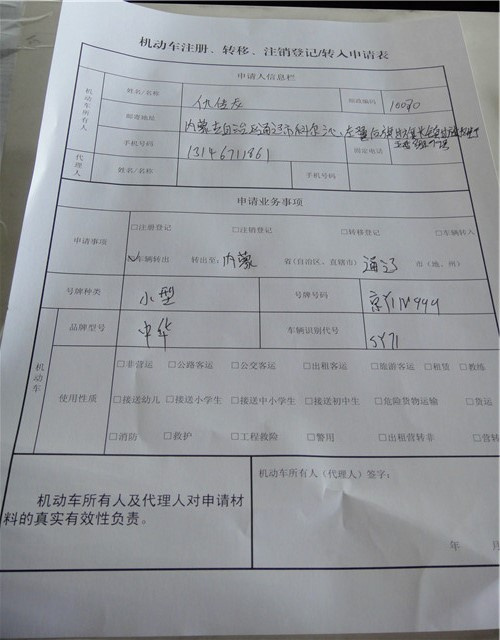 机动车注册、转移、注销登记/转入申请表
申请人信息栏
机动车所有人
姓名/名称
邮政编码
邮寄地址 内蒙古自治区通辽市科尔沁左翼后旗
手机号码 13146711861 固定电话
代理人 姓名/名称 手机号码
申请业务事项
申请事项 □注册登记 □注销登记 □转移登记 □车辆转入
□车辆转出 转出至：内蒙 省（自治区、直辖市） 通辽 市（地、州）
号牌种类 小型 号牌号码
机动车
品牌型号 中华 车辆识别代号 SY71
使用性质 □非营运 □公路客运 □公交客运 □出租客运 □旅游客运 □租赁 □教练
□接送幼儿 □接送小学生 □接送中小学生 □接送初中生 □危险货物运输 □货运
□消防 □救护 □工程救险 □警用 □出租营转非 □营转
机动车所有人及代理人对申请材
料的真实有效性负责。
机动车所有人（代理人）签字：
年 月